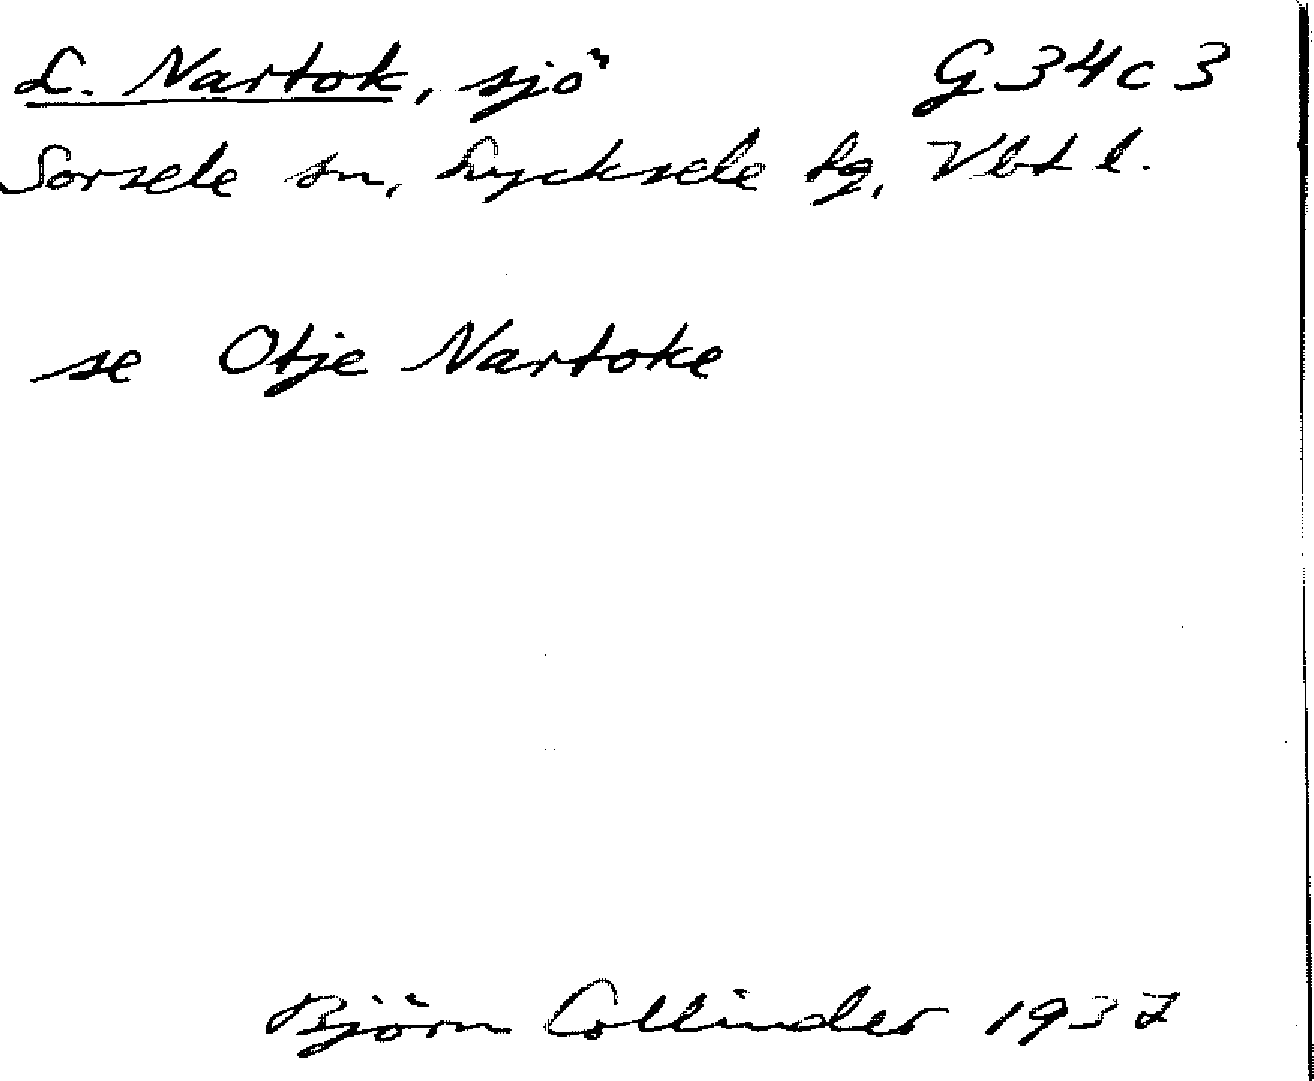 L. Nartok, sjö G 34 c 3
Sorsele sn, Lycksele tg, Vbt l.
se Otje Nartoke
Björn Collinder 1937